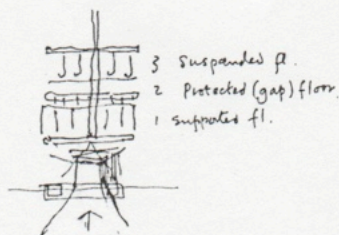 3 Suspanded fl.
2 Protected (gap) floor.
1 supported fl.